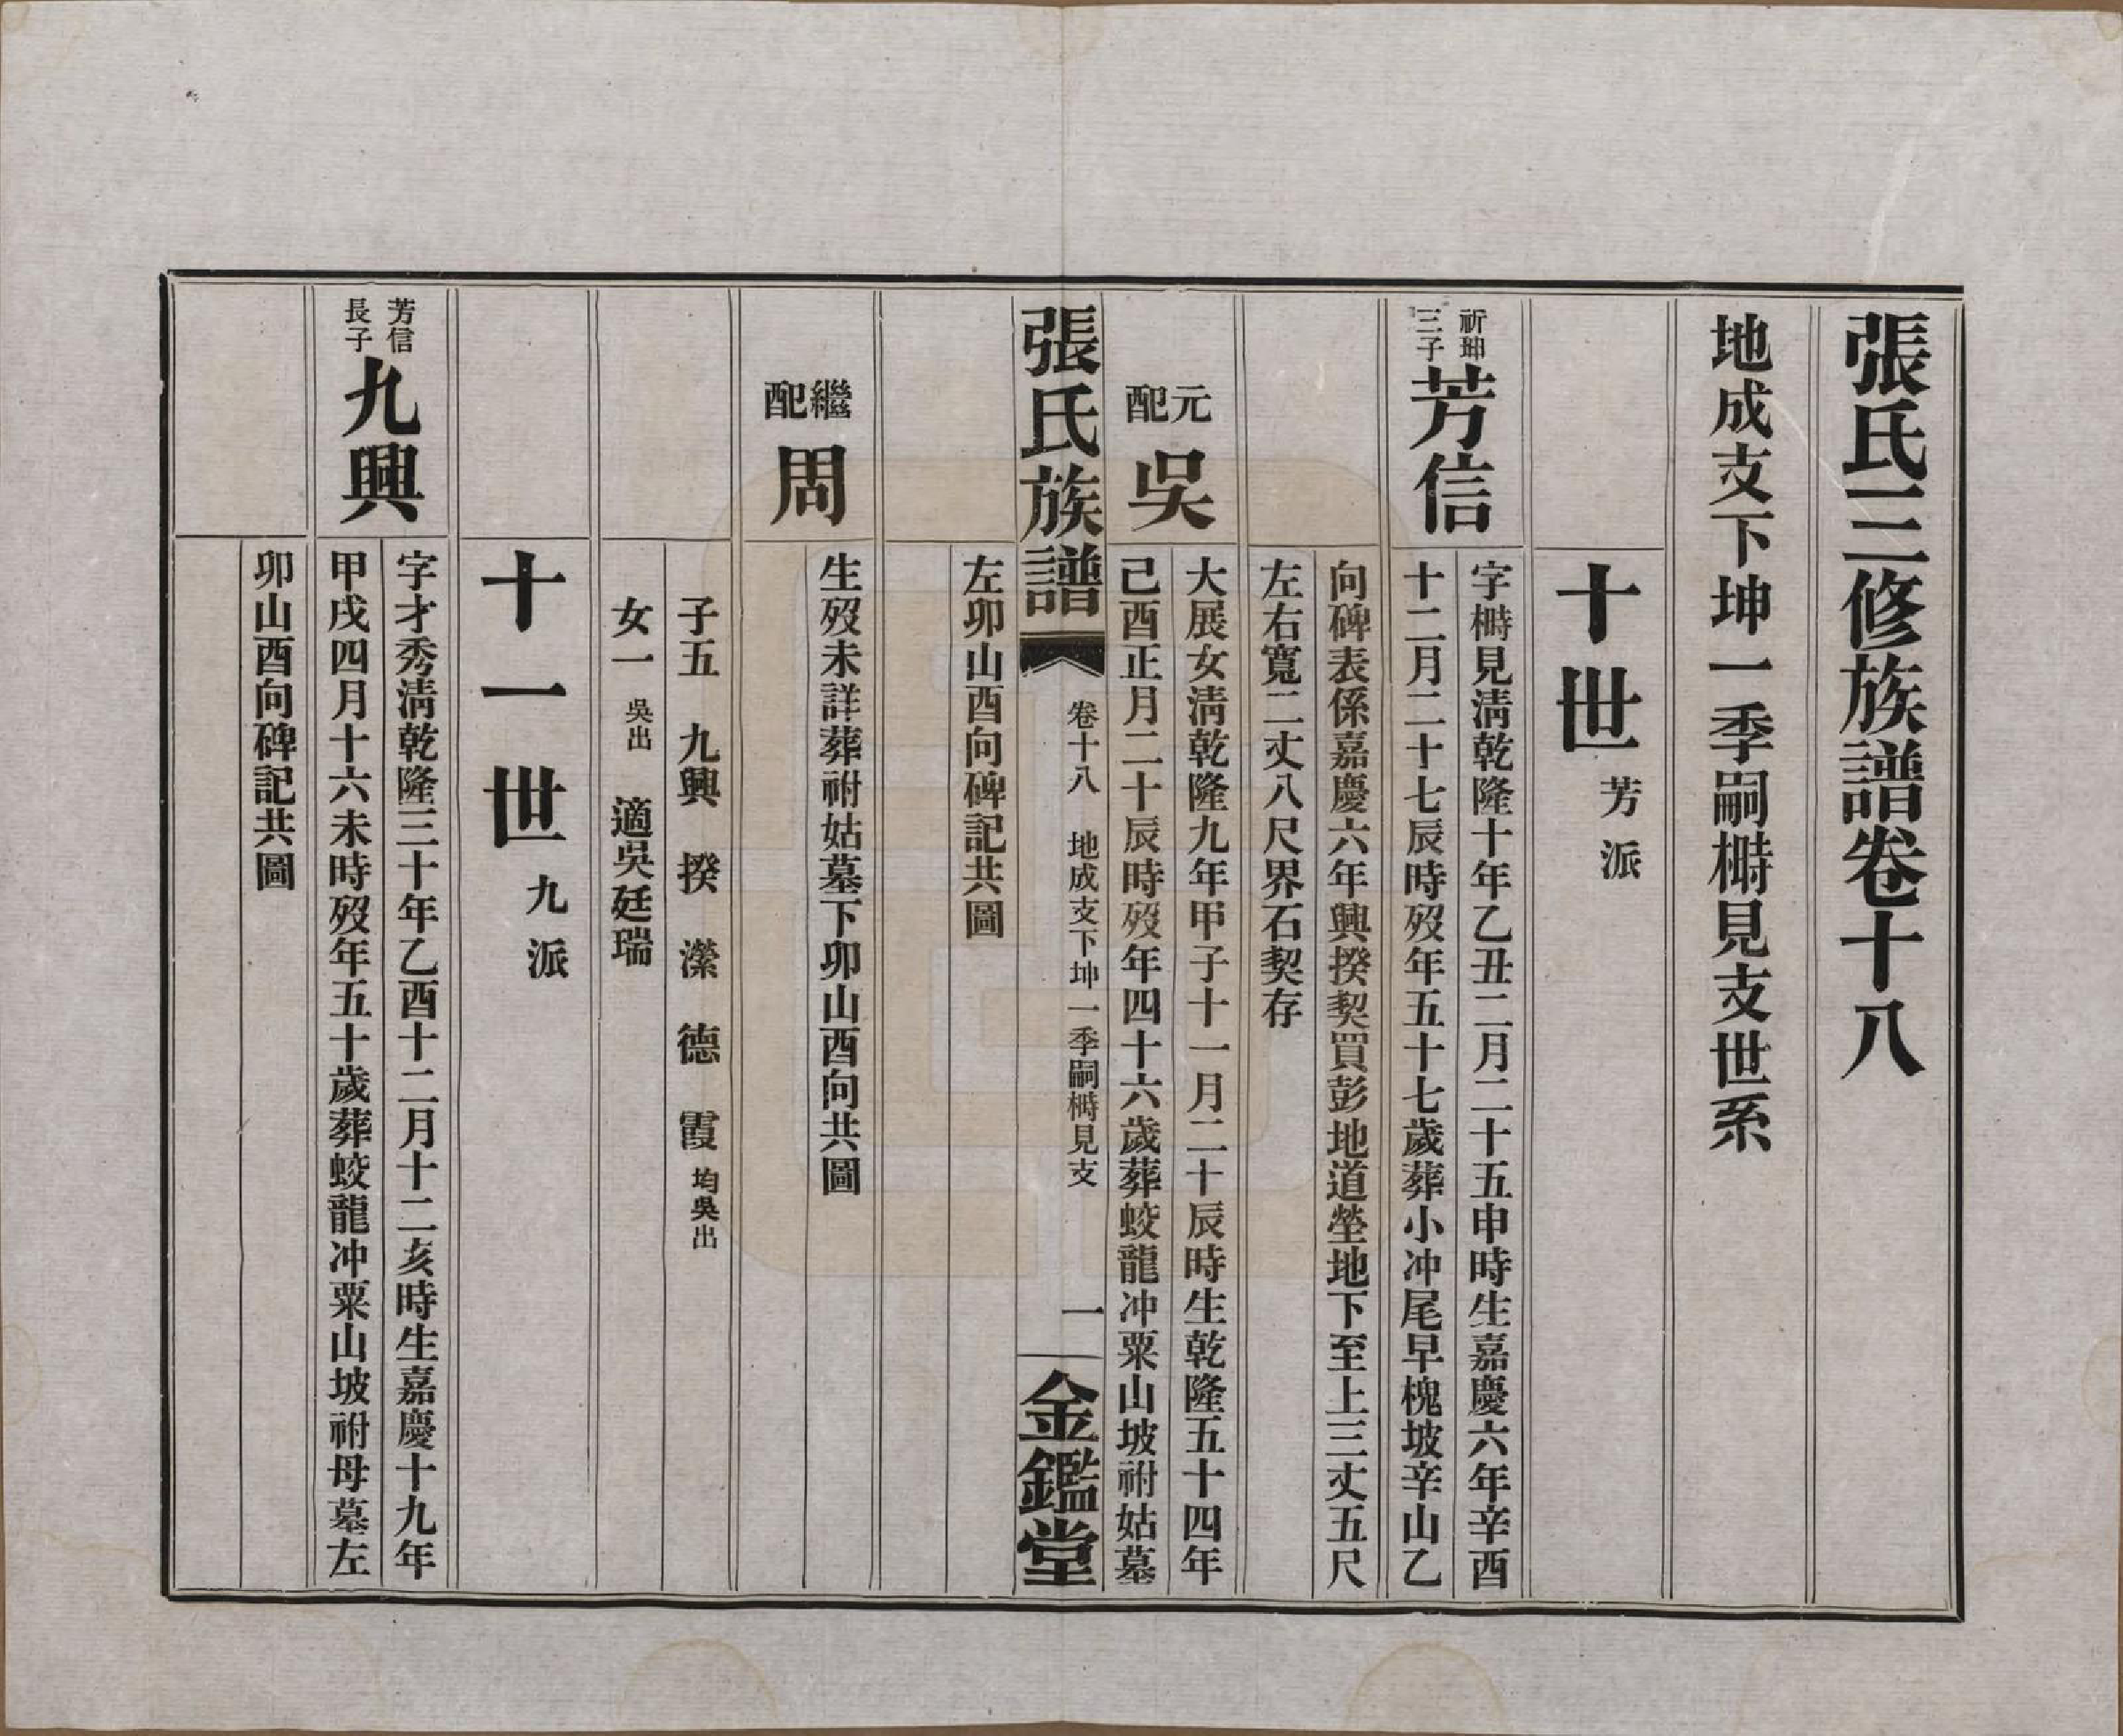 張氏三修族譜卷十八
地成支下坤一季嗣榯見支世系
十世 芳派
祈珅
三子
芳信
字榯見淸乾隆十年乙丑二月二十五申時生嘉慶六年辛酉
十二月二十七辰時歿年五十七歲葬小冲尾早槐坡辛山乙
向碑表係嘉慶六年興揆契買彭地道塋地下至上三丈五尺
左右寬二丈八尺界石契存
元配
吳
大展女淸乾隆九年甲子十一月二十辰時生乾隆五十四年
己酉正月二十辰時歿年四十六歲葬蛟龍冲粟山坡祔姑墓
左卯山酉向碑記共圖
張氏族譜
卷十八 地成支下坤一季嗣榯見支
一
金鑑堂
繼配
周
生歿未詳葬祔姑墓下卯山酉向共圖
子五 九興 揆 瀠 德 霞 均吳出
女一 吳出 適吳廷瑞
十一世 九派
芳信
長子
九興
字才秀淸乾隆三十年乙酉十二月十二亥時生嘉慶十九年
甲戌四月十六未時歿年五十歲葬蛟龍冲粟山坡祔母墓左
卯山酉向碑記共圖